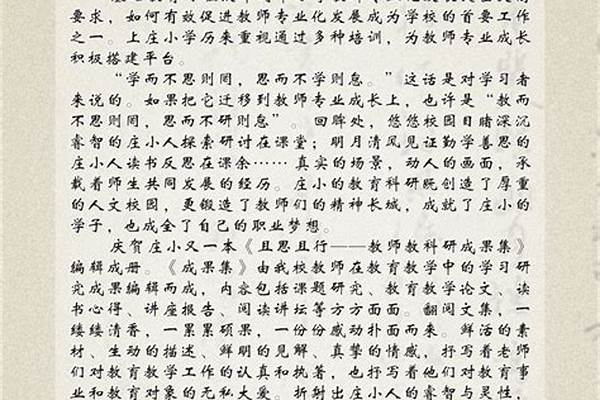 要求，如何有效促进教师专业化发展成为学校的首要工作
之一。上庄小学历来重视通过多种培训，为教师专业成长
积极搭建平台。
“学而不思则罔，思而不学则怠。”这话是对学习者
来说的。如果把它迁移到教师专业成长上，也许是“教而
不思则罔，思而不研则怠”。回眸处，悠悠校园目睹深沉
睿智的庄小人探索研讨在课堂；明月清风见证勤学善思的
庄小人读书反思在课余……真实的场景，动人的画面，承
载着师生共同发展的经历。庄小的教育科研既创造了厚重
的人文校园，更锻造了教师们的精神长城，成就了庄小的
学子，也成全了自己的职业梦想。
庆贺庄小又一本《且思且行——教师教科研成果集》
编辑成册。《成果集》由我校教师在教育教学中的学习研
究成果编辑而成，内容包括课题研究、教育教学论文、读
书心得、讲座报告、阅读讲坛等方方面面。翻阅文集，一
缕缕清香，一累累硕果，一份份感动扑面而来。鲜活的素
材、生动的描述、鲜明的见解、真挚的情感，抒写着老师
们对教育教学工作的认真和执著，也抒写着他们对教育事
业和教育对象的无私大爱。折射出庄小人的睿智与灵性，